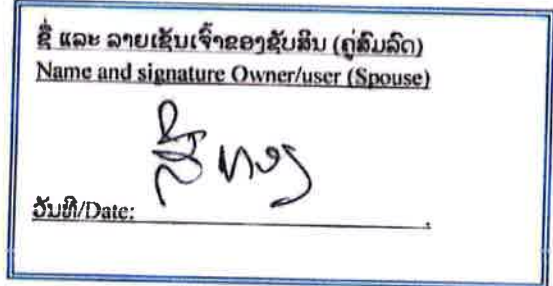 ຊື່ ແລະ ລາຍເຊັນເຈົ້າຂອງຊັບສິນ (ຄູ່ສົມລົດ)
Name and signature Owner/user (Spouse)
ສີທອງ
ວັນທີ/Date: